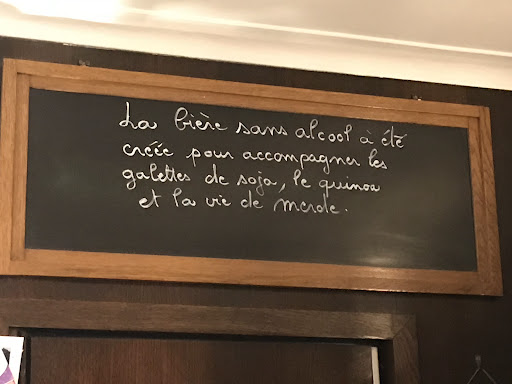 La bière sans alcool à été
créée pour accompagner les
galettes de soja, le quinoa
et la vie de merde.